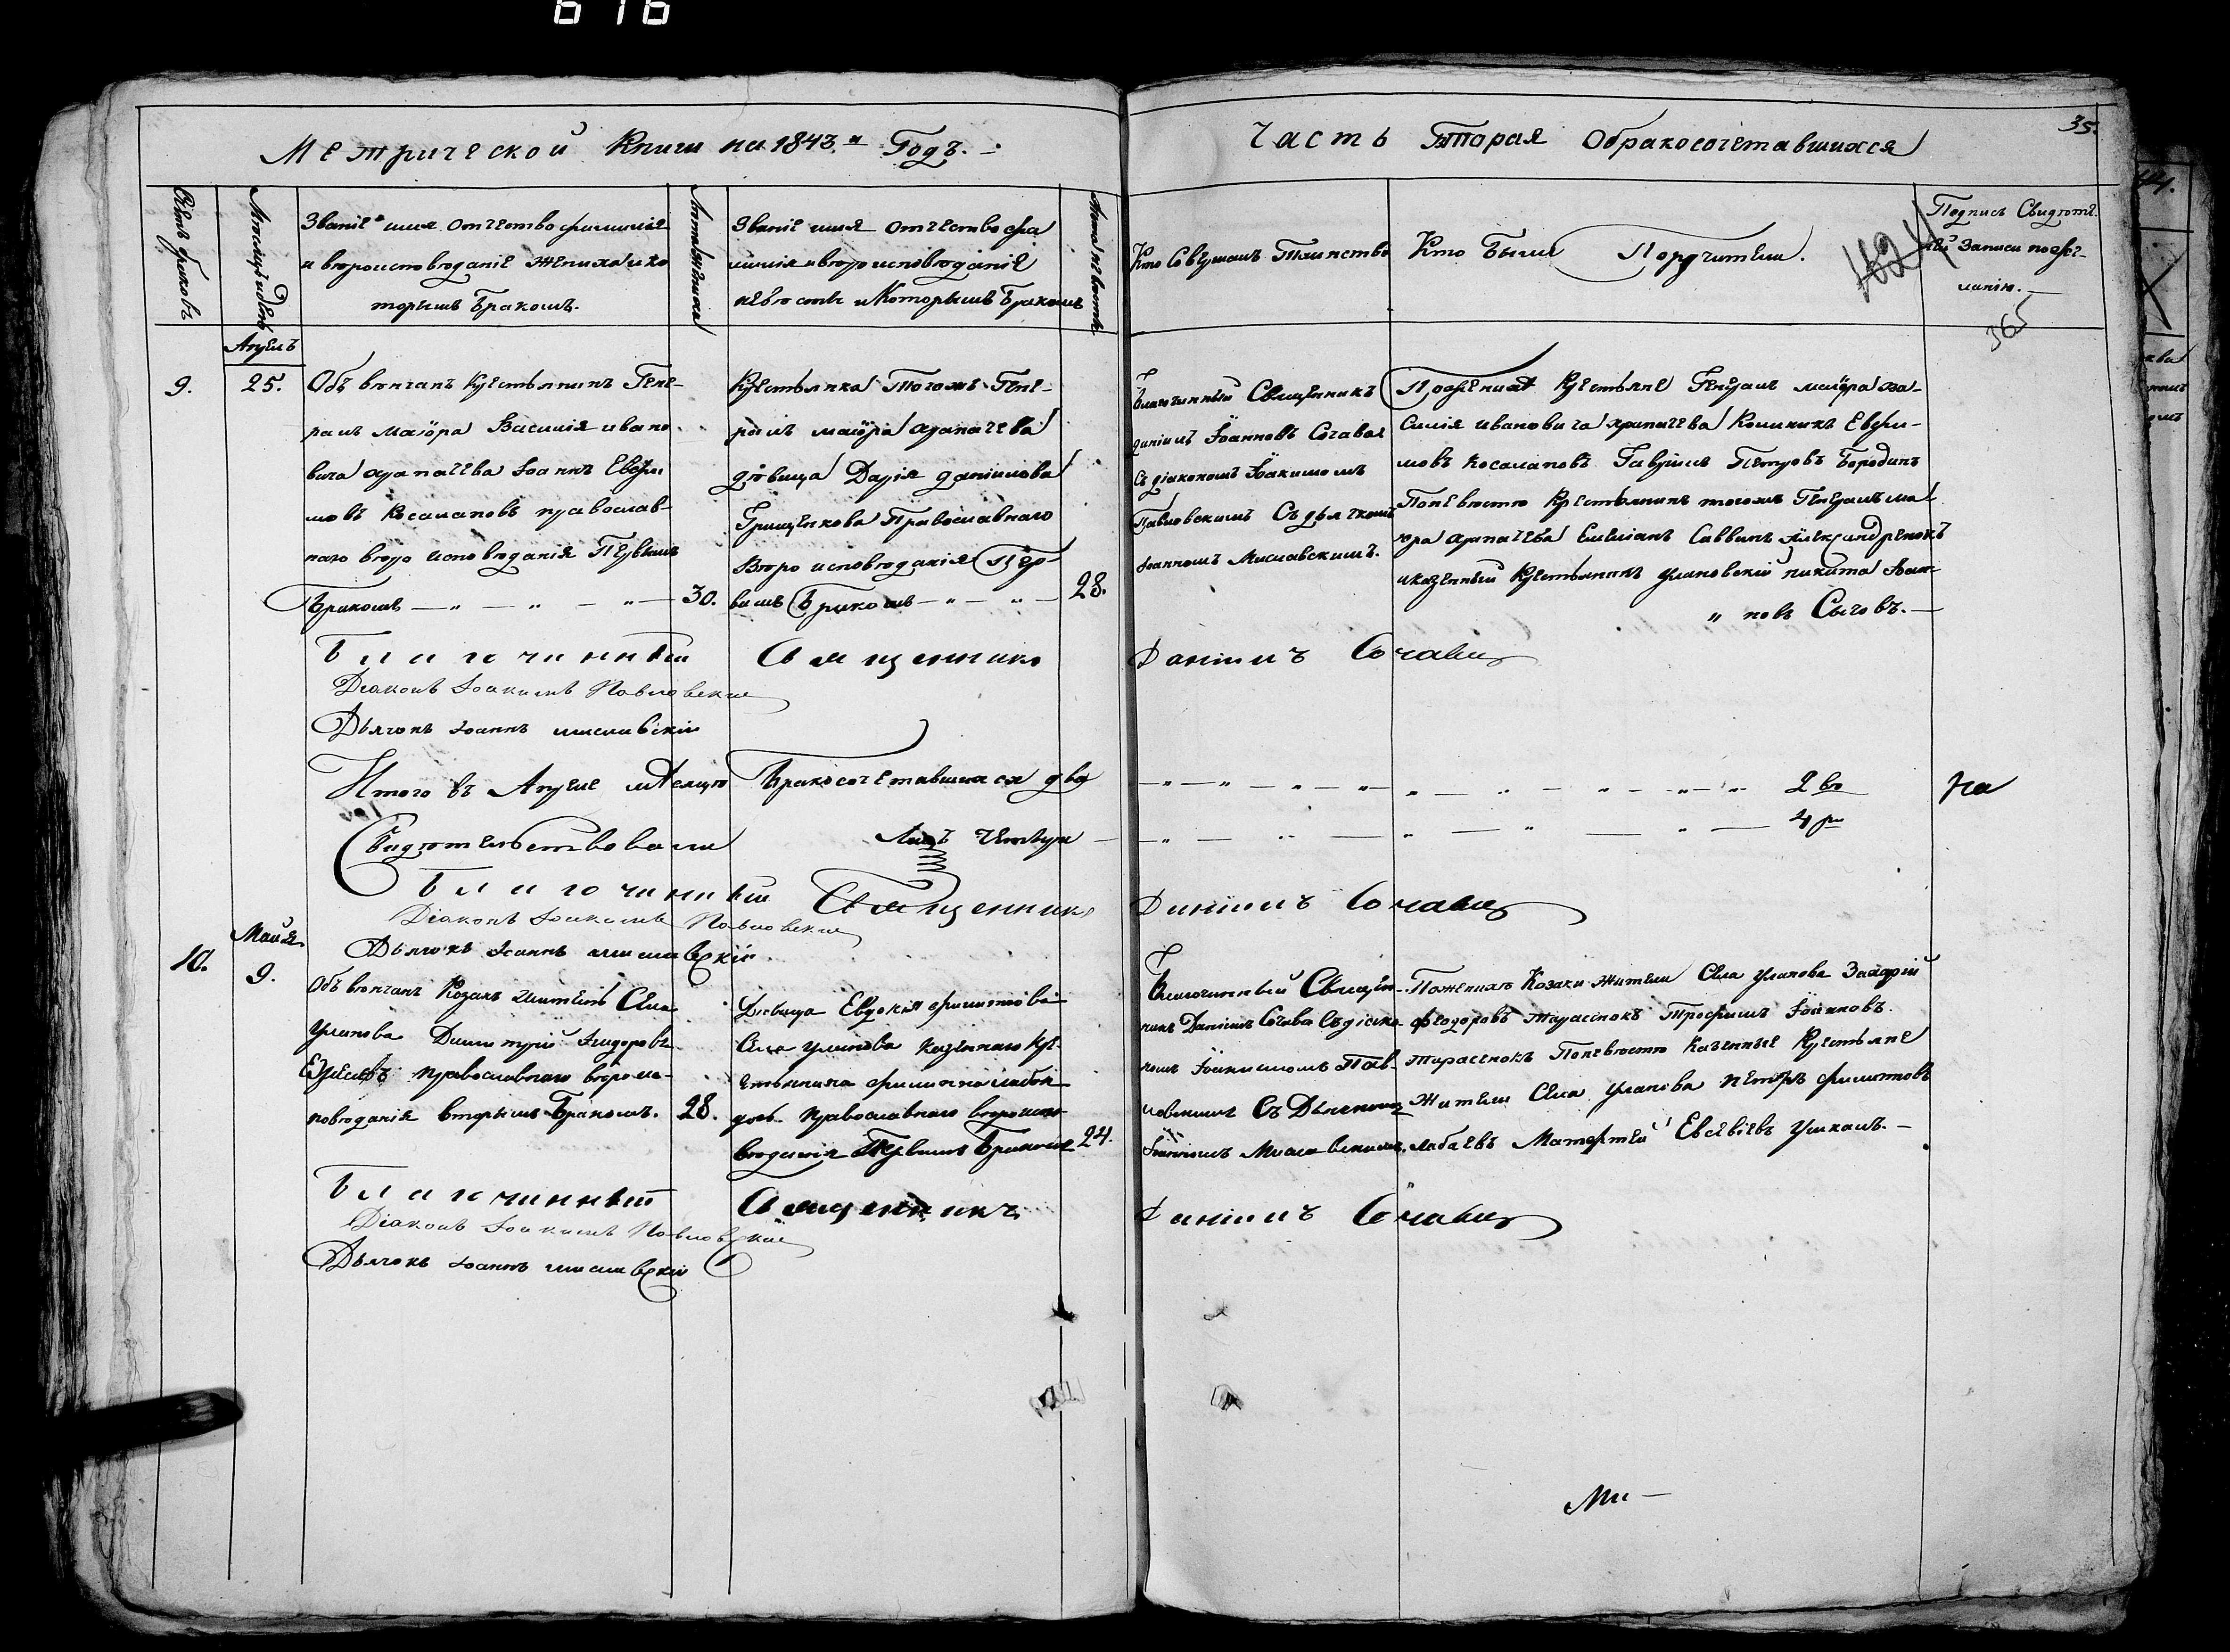 616
Метрической Книги на 1843.й Годъ.
Часть Вторая О бракосочетавшихся
35.
Счетъ браковъ
Месяцъ и День
Званіе имя отчество фамилія
и вероисповеданіе жениха и ко
торымъ Бракомъ.
Лета жениха
Званіе имя отчество фа
милія и вероисповеданіе
невесты и Которымъ Бракомъ
Лета невесты
Кто Совершалъ Таинство
Кто Были Поручители.
Подпись Свидете-
лей Записи по же-
ланію.
365
Апрель
9.
25.
Объ венчанъ Крестьянинъ Гене-
ралъ маіора Василія ивано
вича храпачева Іоаннъ Ефи
мовъ Косалаповъ православ-
наго веро исповеданія Первымъ
Бракомъ
30.
Крестьянка Тогожъ Гене-
ралъ маіора храпачева
девица Дарія даніилова
Грищенкова Православнаго
Веро исповеданія Пер-
вымъ Бракомъ
28.
Благочинный Священникъ
даніилъ Іоанновъ Сочава
съ діакономъ Іоакимомъ
Павловскимъ Съ дьячкомъ
Іоанномъ Миславскимъ.
По женихе Крестьяне Генералъ маіора ва-
силія ивановича храпачева Ефи-
мовъ Косалаповъ Гавріилъ Петровъ Бородинъ
По невесте Крестьянинъ тогожъ Генералъ ма
іора храпачева Емеліанъ Саввинъ Александренокъ
и казенный Крестьянинъ улановскій никита Іоан-
новъ Сычовъ.
Благочинный Священникъ Даніилъ Сочава
Діаконъ Іоакимъ Павловскій
Дьячокъ Іоаннъ миславскій
Итого въ Апреле месяце Бракосочетавшихся два
2ва
На
Свидетельствовали
Лицъ четыре
4ре
Благочинный Священникъ Даніилъ Сочава
Діаконъ Іоакимъ Павловскій
Дьячокъ Іоаннъ миславскій
Майя
10.
9.
Объ венчанъ Козакъ житель Села
Уланова Димитрій
православнаго вероис-
поведанія вторымъ Бракомъ.
28.
Девица Евдокія филипова
Села уланова казеннаго Кре-
стьянина
дочь православнаго вероиспо-
веданія Первымъ Бракомъ
24.
Благочинный Священ-
никъ Даніилъ Сочава Съ діако-
номъ Іоакимомъ Пав-
ловскимъ Съ Дьячкомъ
Іоанномъ Миславскимъ.
По женихе Козаки жители Села уланова
феодоровъ Тарасенокъ Трофимъ Іоанновъ
Тарасенокъ По невесте Казенные Крестьяне
Жители Села уланова петръ филиповъ
Матфей Евсевіевъ Ушкалъ.
Благочинный Священникъ Даніилъ Сочава
Діаконъ Іоакимъ Павловскій
Дьячокъ Іоаннъ миславскій
Ми